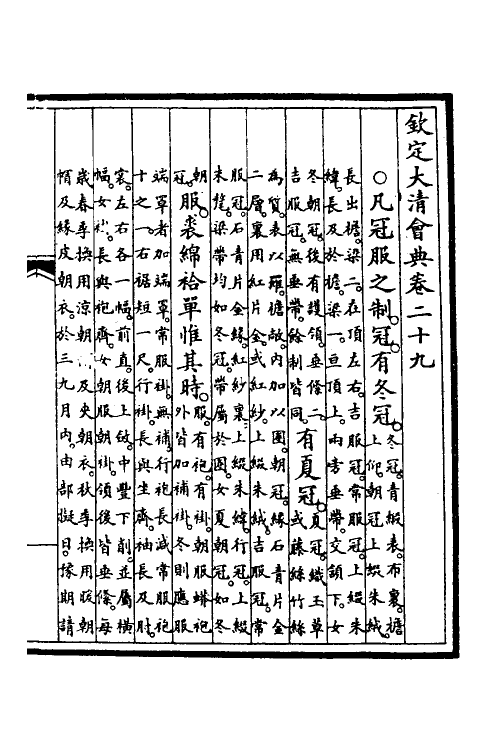 欽定大清會典卷二十九
○凡冠服之制。冠。有冬冠。
冬冠。青緞表。布裏。檐
上仰。朝冠上綴朱絨。
長出檐。梁二。在頂左右。吉服冠。常服冠。上綴朱
緯。長及於檐。梁一。亘頂上。兩旁垂帶。交頷下。女
冬朝冠。後有護領。垂絛二。
吉服冠。無垂帶。餘制皆同。
有夏冠。
夏冠。織玉草
或藤絲竹絲
為質。表以羅。檐敞。內加以圈。朝冠。緣石青片金
二層。裏用紅片金。或紅紗。上綴朱絨。吉服冠。常
服冠。石青片金緣。紅紗裏。上綴朱緯。行冠。上綴
朱氂。梁帶均如冬冠。帶屬於圈。女夏朝冠。如冬
朝
冠。
服。裘綿袷單惟其時。
服。有袍。有褂。朝服蟒袍
外皆加補褂。冬則應服
端罩者加端罩。常服褂。無補。行袍。長減常服袍
十之一。右裾短一尺。行褂。長與坐齊。袖長及肘。
裳。左右各一幅。前直。後上斂。中豐下削。並屬橫
幅。女褂。長與袍齊。女朝服朝褂。領後皆垂絛。每
歲春季換用涼朝及夾朝衣。秋季換用暖朝
帽及緣皮朝衣。於三九月內。由部擬日。豫期請